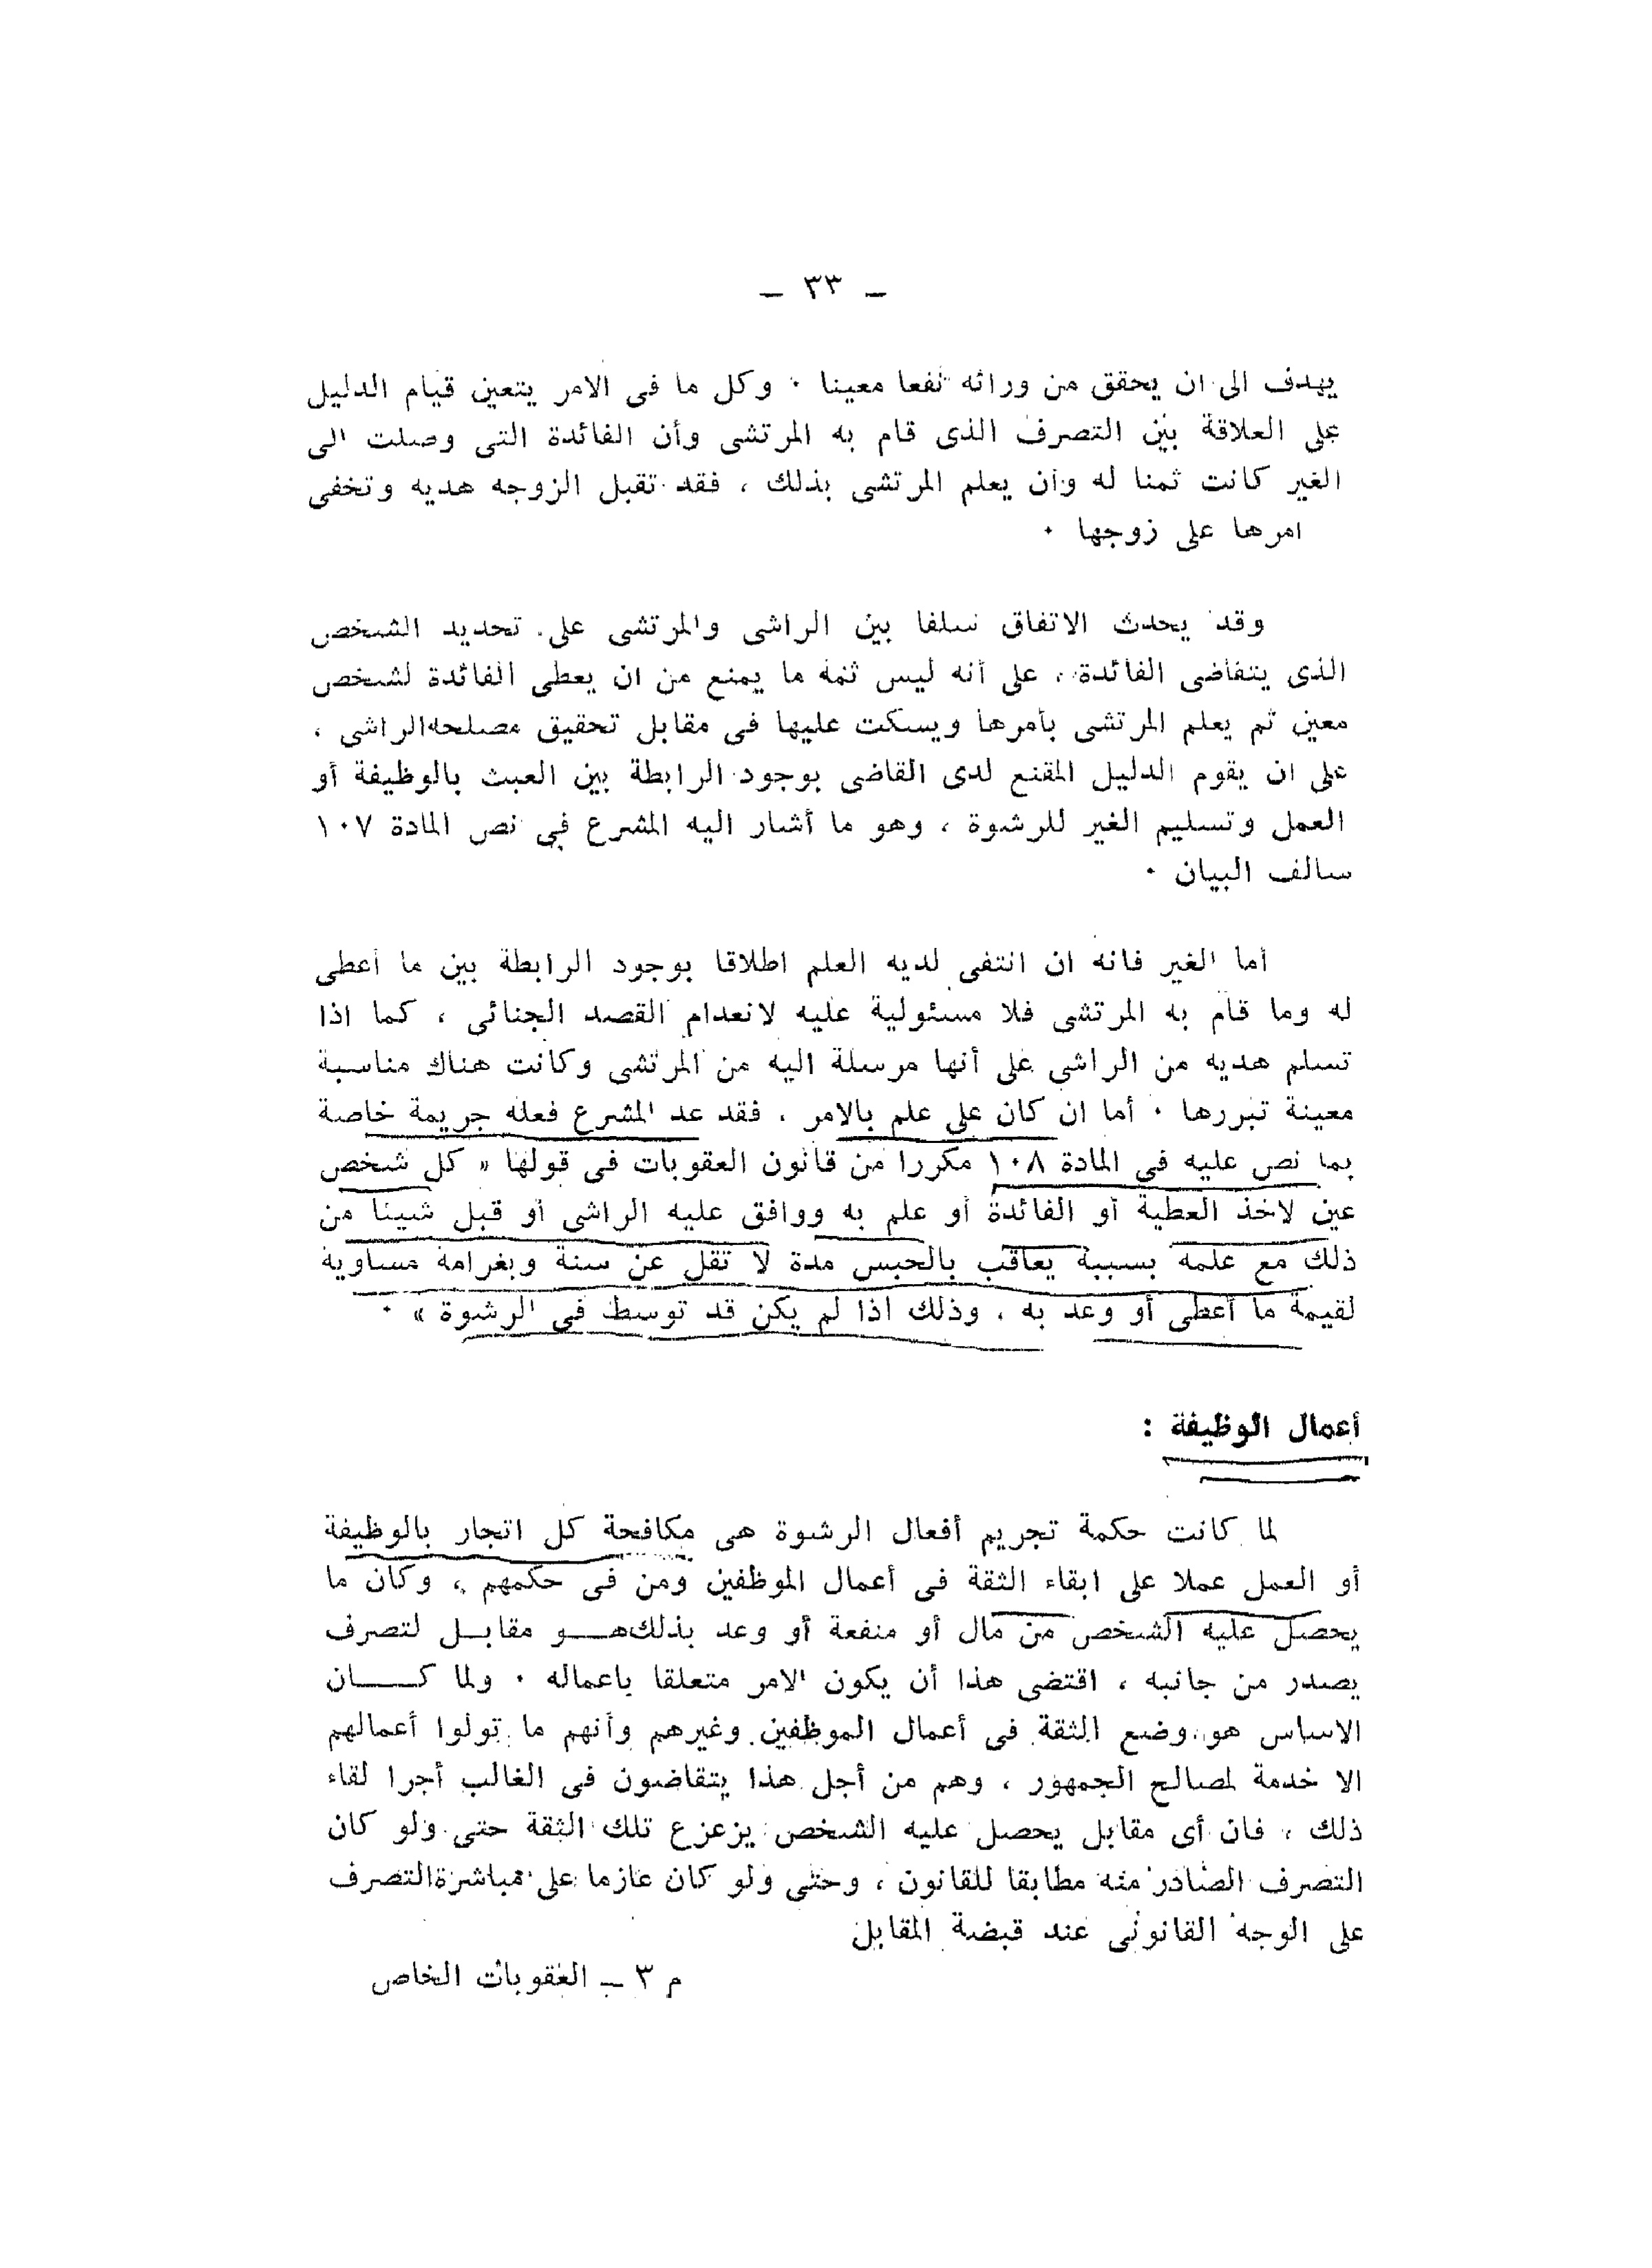 – ٣٣ –
يهدف الى ان يحقق من ورائه نفعا معينا ٠ وكل ما فى الامر يتعين قيام الدليل
على العلاقة بين التصرف الذى قام به المرتشى وأن الفائدة التى وصلت الى
الغير كانت ثمنا له وأن يعلم المرتشى بذلك ، فقد تقبل الزوجه هديه وتخفى
امرها على زوجها ٠
وقد يحدث الاتفاق سلفا بين الراشى والمرتشى على تحديد الشخص
الذى يتقاضى الفائدة ، على أنه ليس ثمة ما يمنع من ان يعطى الفائدة لشخص
معين ثم يعلم المرتشى بأمرها ويسكت عليها فى مقابل تحقيق مصلحه الراشى ،
على ان يقوم الدليل المقنع لدى القاضى بوجود الرابطة بين العبث بالوظيفة أو
العمل وتسليم الغير للرشوة ، وهو ما أشار اليه المشرع فى نص المادة ١٠٧
سالف البيان ٠
أما الغير فانه ان انتفى لديه العلم اطلاقا بوجود الرابطة بين ما أعطى
له وما قام به المرتشى فلا مسئولية عليه لانعدام القصد الجنائى ، كما اذا
تسلم هديه من الراشى على أنها مرسلة اليه من المرتشى وكانت هناك مناسبة
معينة تبررها ٠ أما ان كان على علم بالامر ، فقد عد المشرع فعله جريمة خاصة
بما نص عليه فى المادة ١٠٨ مكررا من قانون العقوبات فى قولها « كل شخص
عين لاخذ العطية أو الفائدة أو علم به ووافق عليه الراشى أو قبل شيئا من
ذلك مع علمه بسببه يعاقب بالحبس مدة لا تقل عن سنة وبغرامة مساوية
لقيمة ما أعطى أو وعد به ، وذلك اذا لم يكن قد توسط فى الرشوة » ٠
أعمال الوظيفة :
لما كانت حكمة تجريم أفعال الرشوة هى مكافحة كل اتجار بالوظيفة
أو العمل عملا على ابقاء الثقة فى أعمال الموظفين ومن فى حكمهم ، وكان ما
يحصل عليه الشخص من مال أو منفعة أو وعد بذلك هــو مقابــل لتصرف
يصدر من جانبه ، اقتضى هذا أن يكون الامر متعلقا باعماله ٠ ولما كــــان
الاساس هو وضع الثقة فى أعمال الموظفين وغيرهم وأنهم ما تولوا أعمالهم
الا خدمة لمصالح الجمهور ، وهم من أجل هذا يتقاضون فى الغالب أجرا لقاء
ذلك ، فان أى مقابل يحصل عليه الشخص يزعزع تلك الثقة حتى ولو كان
التصرف الصادر منه مطابقا للقانون ، وحتى ولو كان عازما على مباشرة التصرف
على الوجه القانونى عند قبضة المقابل
م ٣ – العقوبات الخاص